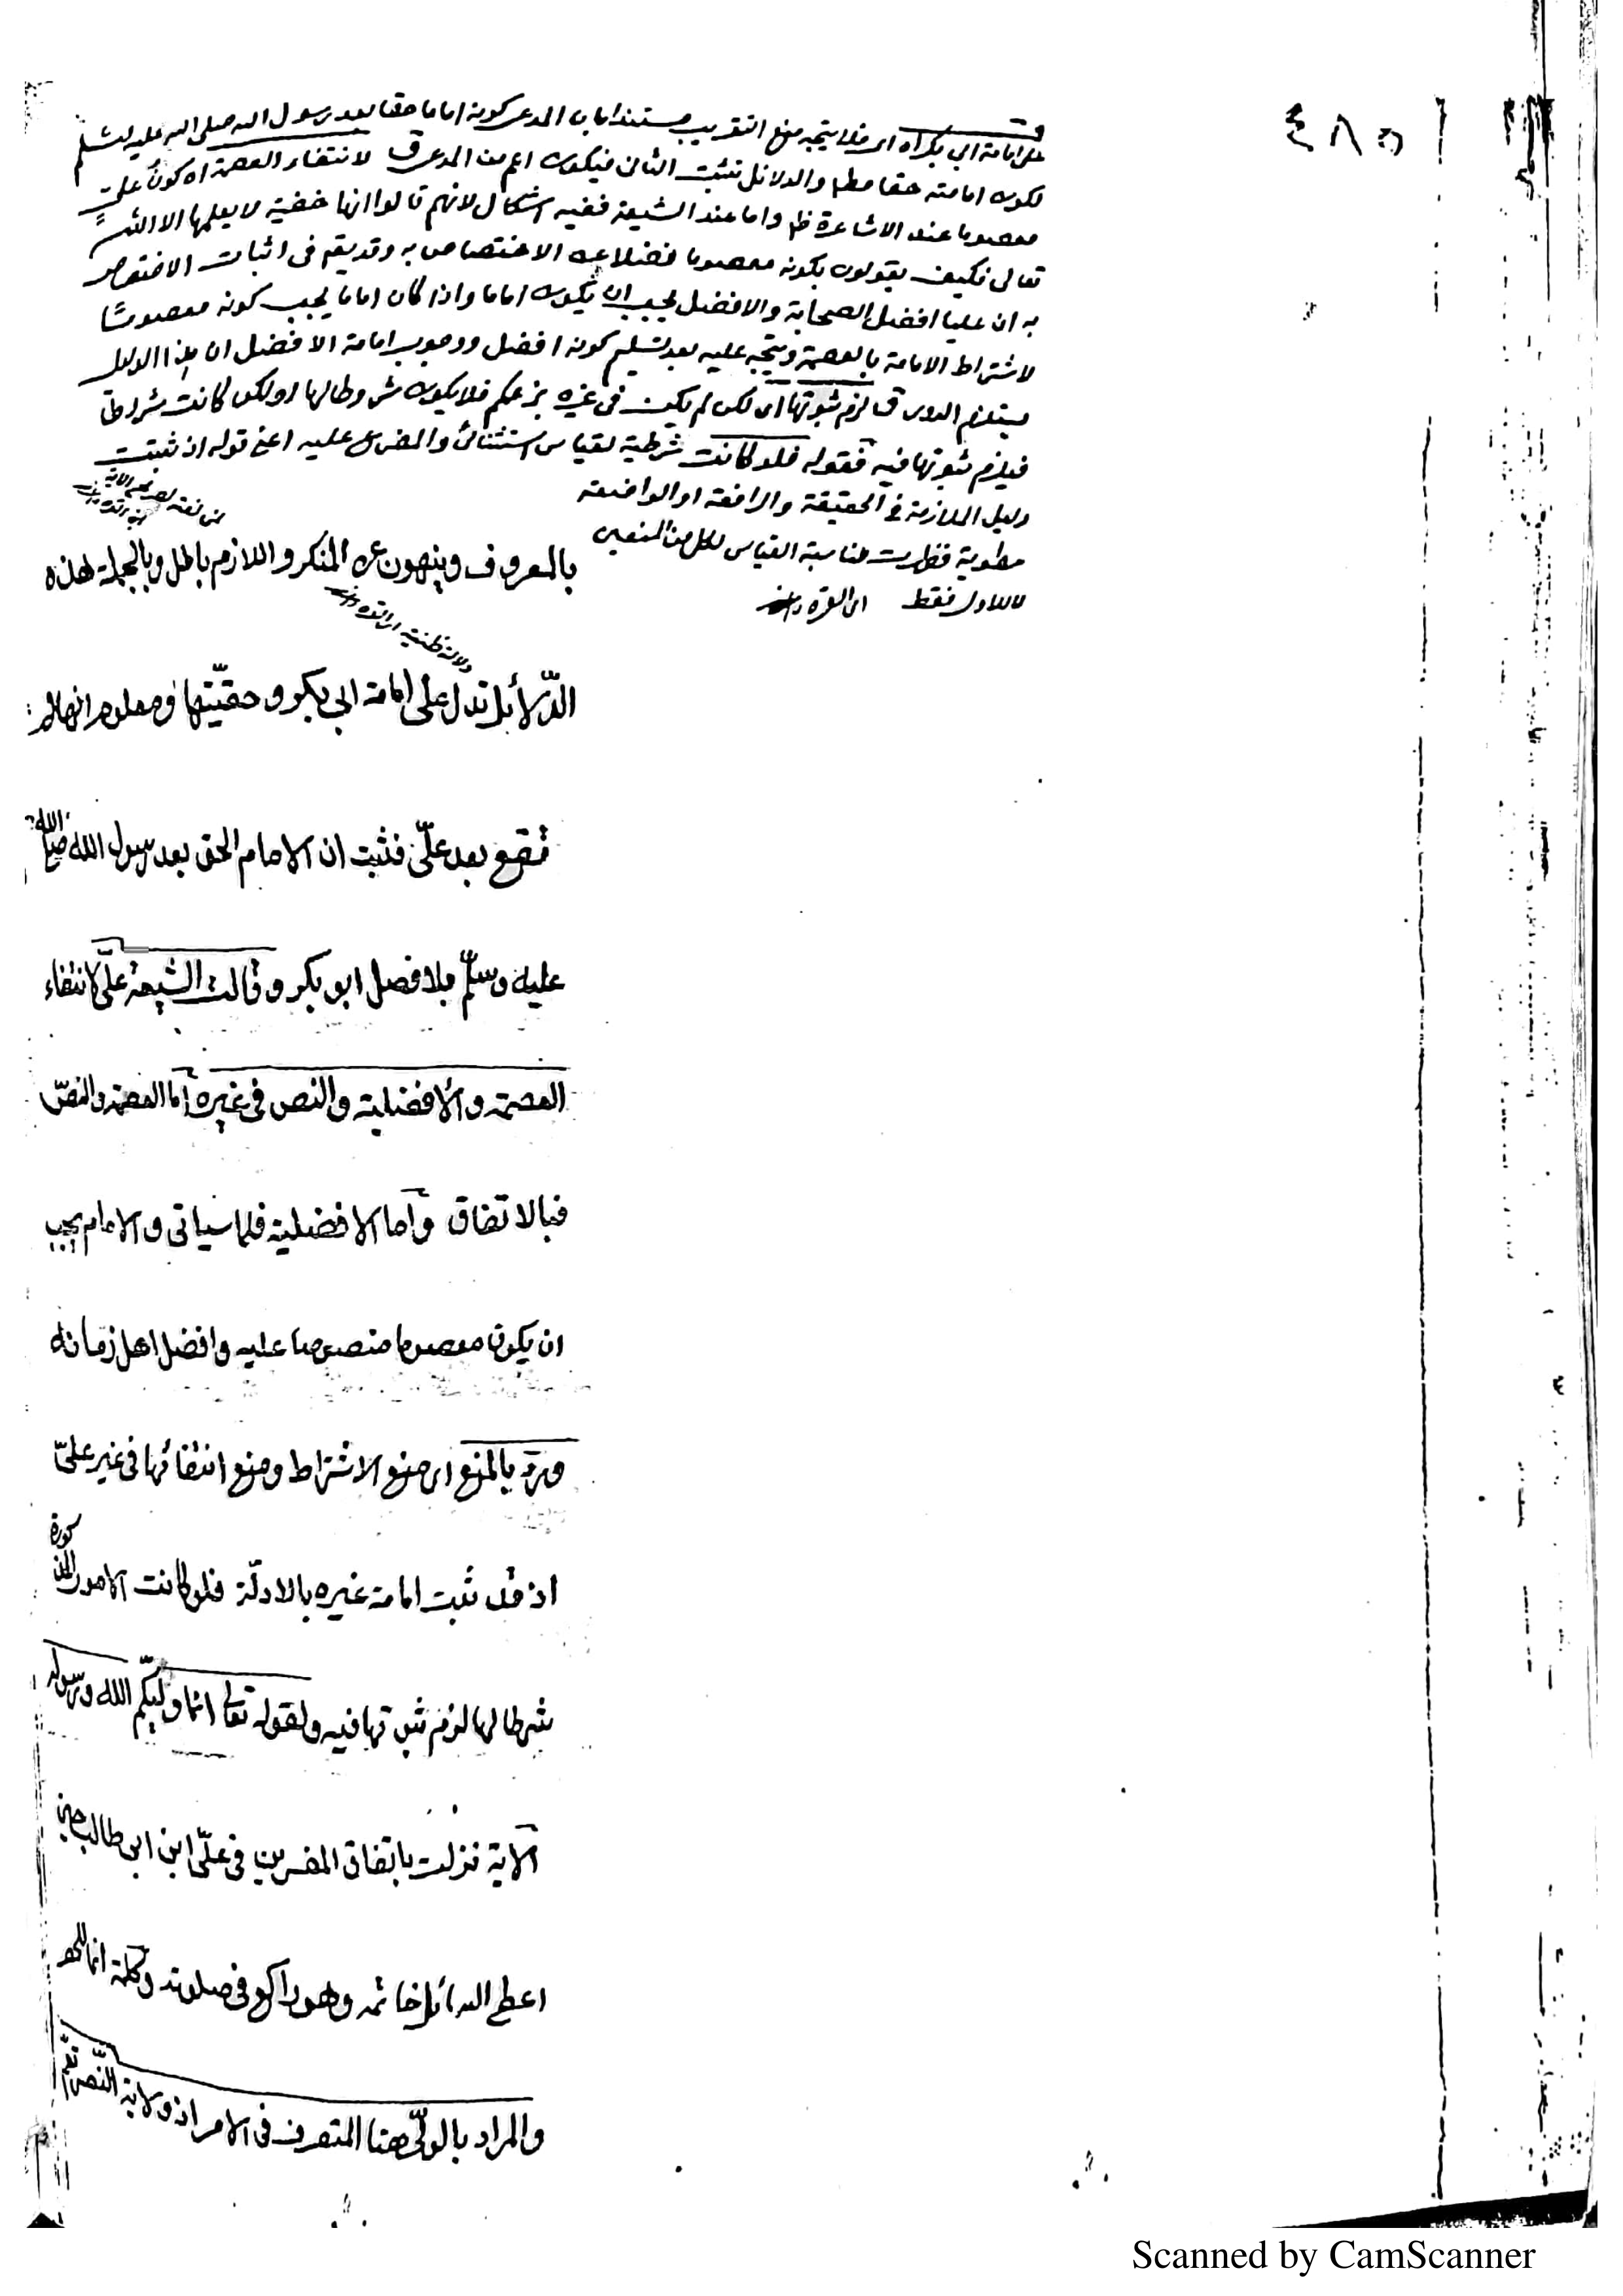 ٤٨٥
على امامة ابي بكر اه اى فلا يتجه منع التقريب مستندا بان المدعى كونه اماما حقا بعد رسول الله صلى الله عليه وسلم
لكون امامته حقا مطلقا والدلائل تثبت الثانى فيكون اعم من المدعى ق لانتفاء العصمة اه كون على
معصوما عند الاشاعرة ظ واما عند الشيعة ففيه اشكال لانهم قالوا انها خفية لا يعلمها الا الله
تعالى فكيف يقولون بكونه معصوما فضلا عن الاختصاص به وقد يقم فى اثبات الاختصاص
به ان عليا افضل الصحابة والافضل يجب ان يكون اماما واذا كان اماما يجب كونه معصوما
لاشتراط الامامة بالعصمة ويتجه عليه بعد تسليم كونه افضل ووجوب امامة الافضل ان هذا الدليل
يستلزم الدور ق لزم ثبوتها اى لكن لم يكن فى غيره بزعمكم فلا يكون شروطا لها او لكن كانت شروطا
فيلزم ثبوتها فيه فقوله فلو كانت شرطية لقياس استثنائى والمفرع عليه اعنى قوله اذ ثبت
دليل الملازمة فى الحقيقة والرافعة او الواضعة
مطوية فظهرت مناسبة القياس لكل من المنعين
لا للاول فقط
بالمعروف وينهون عن المنكر واللازم باطل وبالجملة هذه
دلالة ظنية
الدّلائل تدل على امامة ابي بكر وحقيّتها ومعلوم انها لم
تقع بعد علىّ فثبت ان الامام الحق بعد رسول الله صلى الله
عليه وسلّم بلا فصل ابو بكر وقالت الشيعة علىّ لانتفاء
العصمة والافضلية والنص فى غيره اما العصمة والنصّ
فبالاتفاق واما الافضلية فلما سياتى والامام يجب
ان يكون معصوما منصوصا عليه وافضل اهل زمانه
وردّ بالمنع اى منع الاشتراط ومنع انتفائها فى غير علىّ
اذ قد ثبت امامة غيره بالادلّة فلو كانت الامور المذكورة
شرطا لها لزم ثبوتها فيه ولقوله تعالى انما وليّكم الله ورسوله
الاية نزلت باتفاق المفسرين فى علىّ ابن ابى طالب حين
اعطى السائل خاتمه وهو راكع فى صلوته وكلمة انما للحصر
والمراد بالولىّ هنا المتصرف فى الامر اذ ولاية النّصرة تعم
Scanned by CamScanner